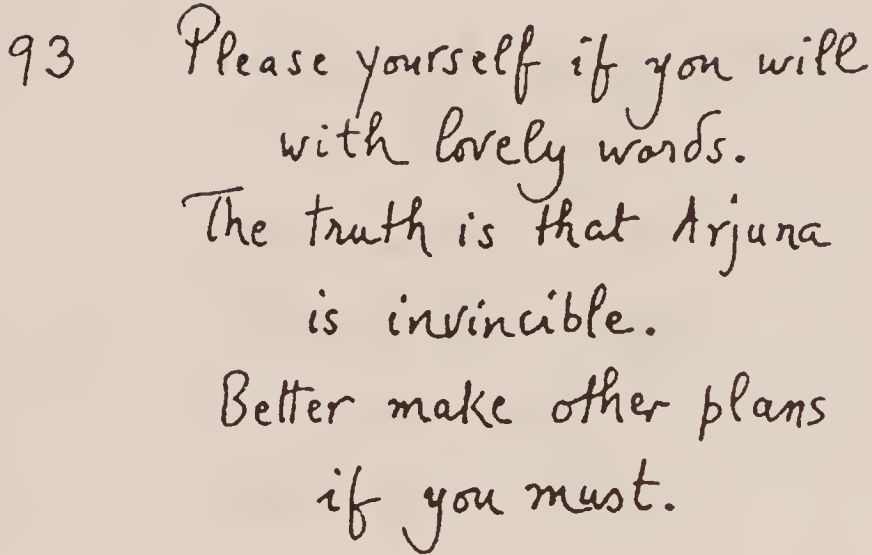 93 Please yourself if you will
with lovely words.
The truth is that Arjuna
is invincible.
Better make other plans
if you must.